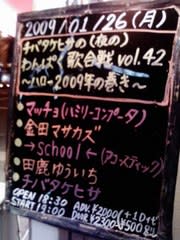 2009/01/26(月)
チバタケヒサの(夜の)
わんぱく歌合戦 vol.42
～ハロー2009年の巻き～
・マッチョ(ハミリーコンプータ)
・金田マサカズ
・→School←(アコースティック)
・田鹿ゆういち
・チバタケヒサ
OPEN 18:30 ADV.¥2000(+1D
START 19:00 DOOR ¥2300 ¥500